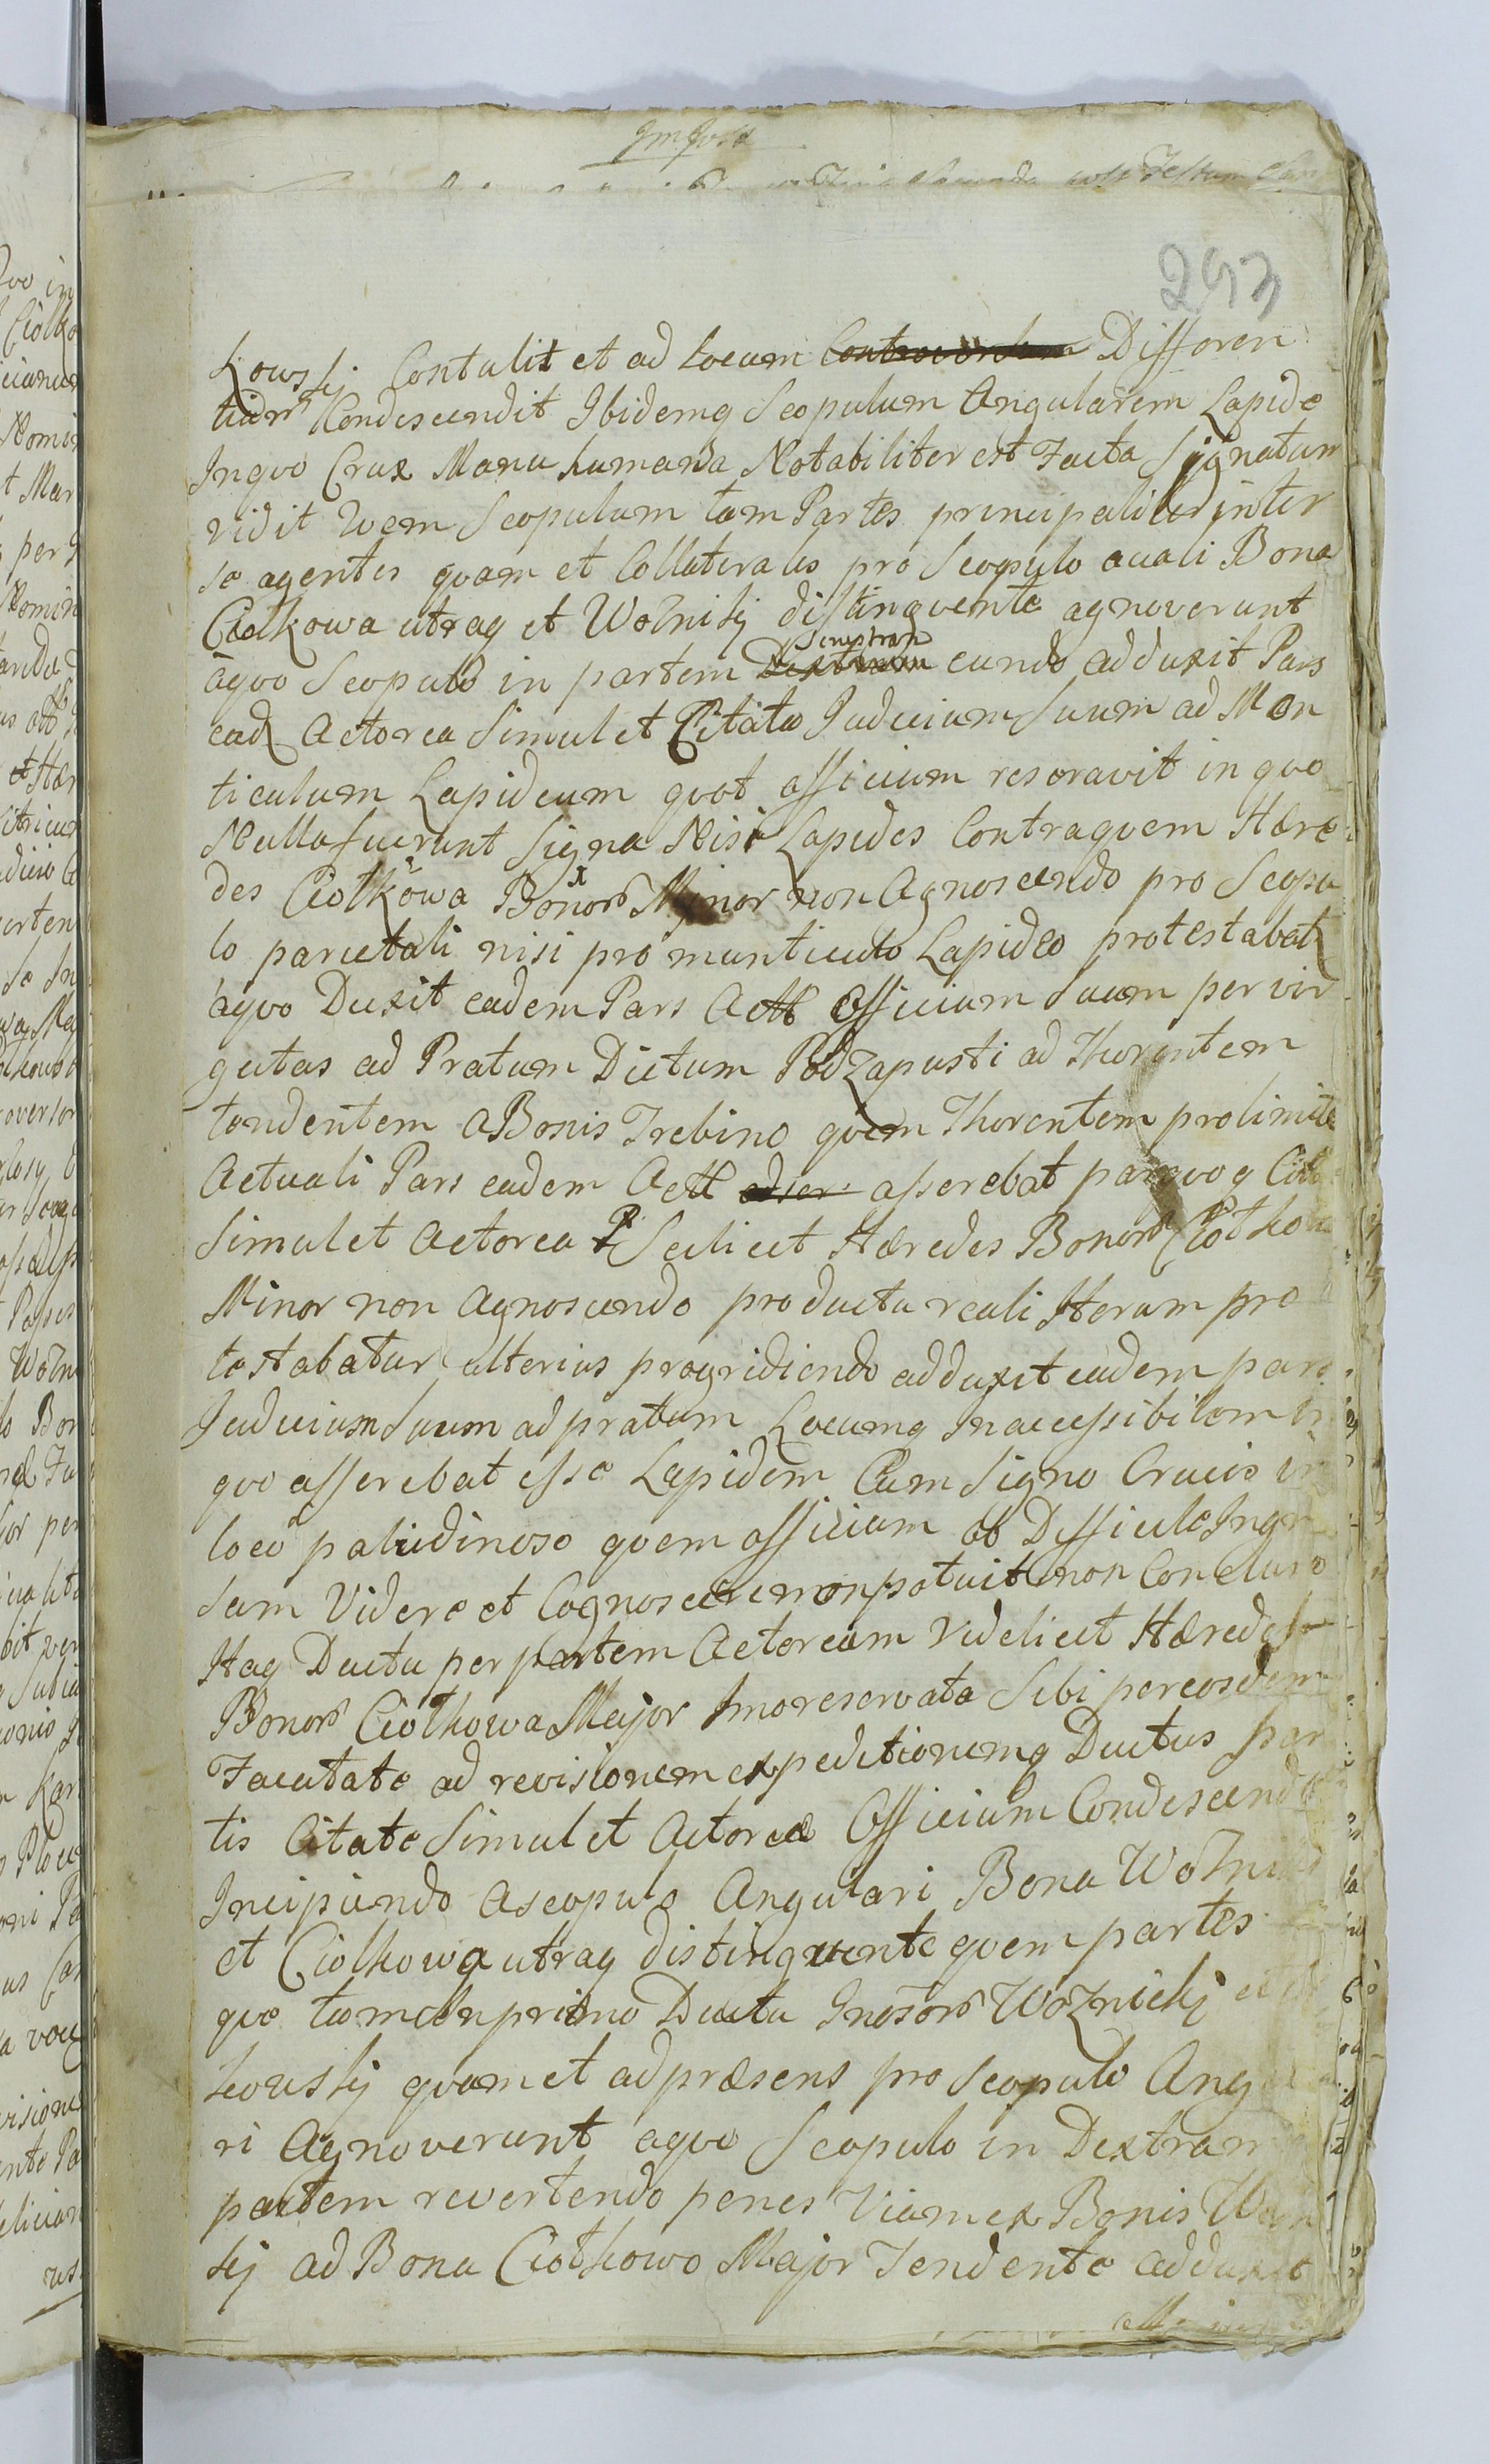 293
kowskj Contulit et ad Locum Controversum Differen
tiarͫ Condescendit Ibidemq Scopulum Angularem Lapide
Inquo Crux Manu humana Notabiliter est Facta Signatum
vidit quem Scopulum tam Partes principaliter inter
se agentes quam et Collaterales pro Scopulo acuali Bona
Ciołkowa utraq et Woźniki distinguente agnoverunt
àquo Scopulo in partem Dextram Sinistram eundo adduxit Pars
ead Actorea Simul et Citata Judicium Suum ad Mon
ticulum Lapideum quot officium resoravit in quo
Nulla fuerunt Signa Nisi Lapides Contraquem Hære
des Ciołkowa Bonorͫ Minor non Agnoscendo pro Scopu
lo parietali nisi pro munticulo Lapideo protestabat
àquo Duxit eadem Pars Actt Officium Suum per vir
gutas ad Pratum Dictum Podzapusti ad Thorentem
tendentem aBonis Trebino quem Thorentem prolimite
Actuali Pars eadem Actt adser asserebat parquoq
Simul et Actorea P Scilicet Hæredes Bonorͫ Ciołkowa
Minor non Agnoscendo productu reali Iterum pro
testabatur ulterius progridiendo adduxit eadem pars
Judicium Suum ad pratum Locumq Inaccessibilem in
quo asserebat esse Lapidem Cum Signo Crucis in
loco paludinoso quem officium ob Difficile Ingr
sum Videre et Cognoscere non potuit non Concluso
Itaq Ductu per partem Actoream videlicet Hæredes
Bonorͫ Ciołkowa Major Imo reservata Sibi pereosdem
Facultate ad revisionem expeditionemq Ductus par
tis Citate Simul et Actoreæ Officium Condescendit
Incipiendo ascopulo Angulari Bona Woźniki
et Ciołkowa utraq distinguente quem partes
que tam in primo Ductu Woźnickj
kowskj quam et ad præsens pro Scopulo Ang
ri Agnoverunt aquo Scopulo in Dextram
partem revertendo penes Viam ex Bonis
kj ad Bona Ciołkowo Major Tendente adduxit